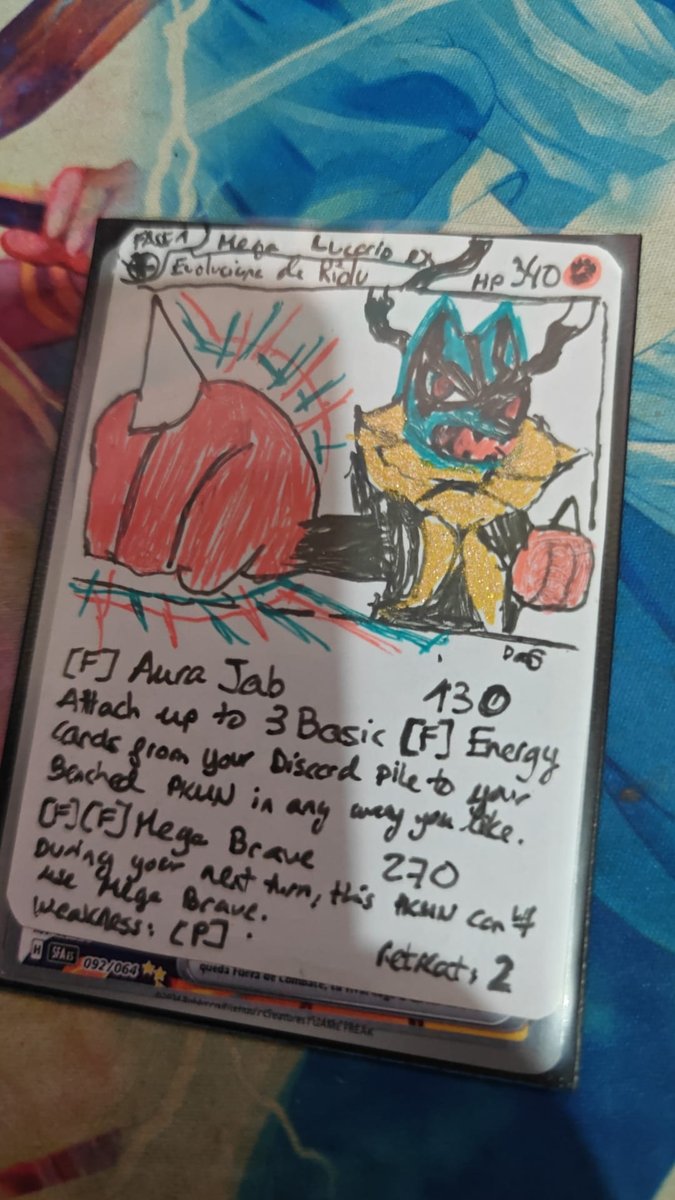 FASE 1 Mega Lucario ex
Evoluciona de Riolu HP 340
[F] Aura Jab 130
Attach up to 3 Basic [F] Energy
cards from your Discard pile to your
Benched PKMN in any away you like.
[F][F] Mega Brave 270
During your next turn, this PKMN can't
use Mega Brave.
Weakness: [P].
retreat: 2
H SFA ES 092/064
queda Fuera de Combate, tu
GAME FREAK